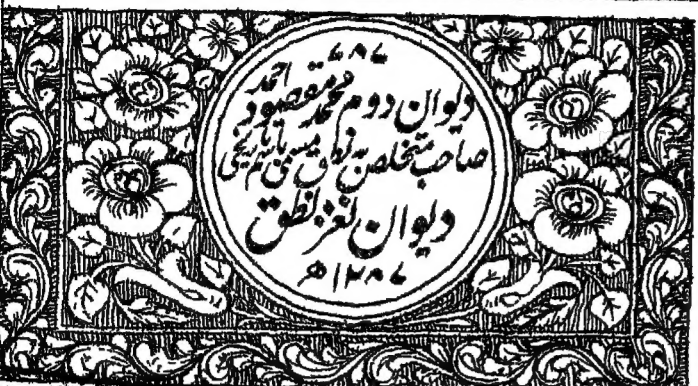 ۷۸۶
دیوان دوم محمد مقصود احمد
صاحب متخلص به نطق مسمی بنام تاریخی
دیوان نغز نطق
۱۲۸۷ھ